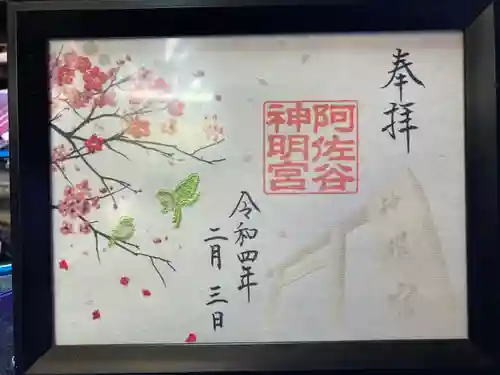 奉拝
阿佐谷
神明宮
神明宮
令和四年
二月三日